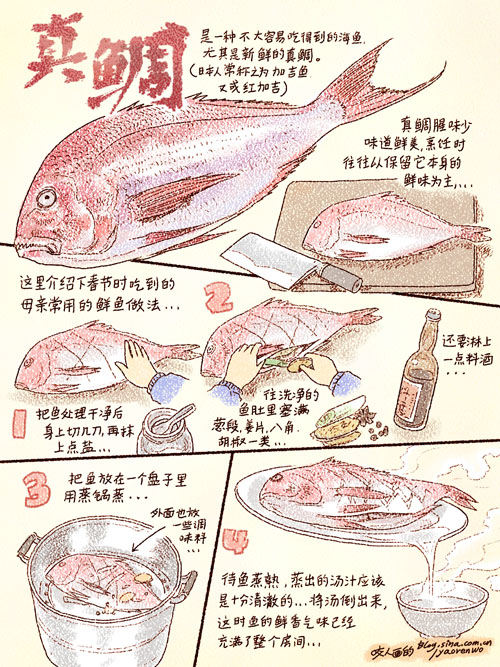 真鲷
是一种不太容易吃得到的海鱼
尤其是新鲜的真鲷。
(日本人常称之为加吉鱼
又或红加吉)
真鲷腥味少
味道鲜美,烹饪时
往往从保留它本身的
鲜味为主....
这里介绍下春节时吃到的
母亲常用的鲜鱼做法...
1
把鱼处理干净后
身上切几刀,再抹
上点盐...
2
往洗净的
鱼肚里塞满
葱段,姜片,八角
胡椒一类...
还要淋上
一点料酒
...
3
把鱼放在一个盘子里
用蒸锅蒸...
外面也放
一些调
味料
...
4
待鱼蒸熟,蒸出的汤汁应该
是十分清澈的...将汤倒出来,
这时鱼的鲜香气味已经
充满了整个房间...
咬人画的
blog.sina.com.cn
/yaorenwo